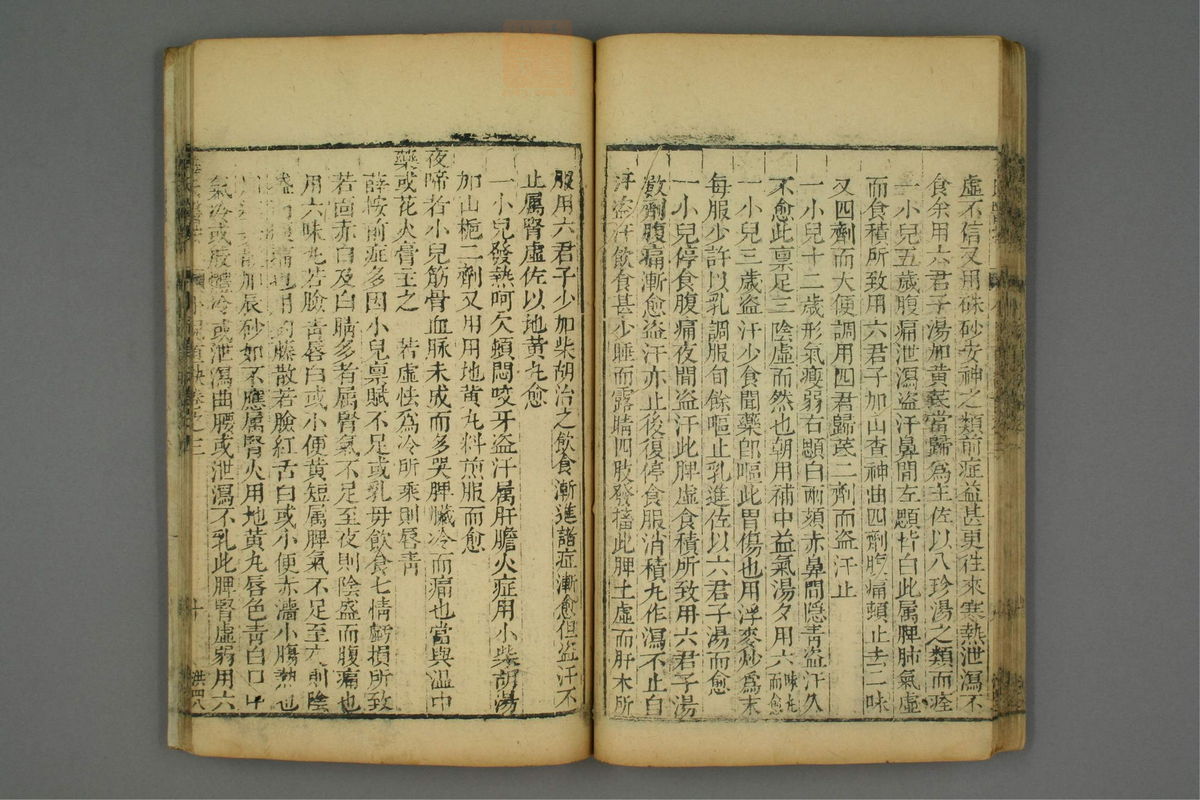 虛不信又用硃砂安神之類前症益甚更徃來寒熱泄瀉不
食余用六君子湯加黃芪當歸爲主佐以八珍湯之類而痊
一小兒五歲腹痛泄瀉盜汗鼻間左顋皆白此屬脾肺氣虛
而食積所致用六君子加山查神曲四劑腹痛頓止去二味
又四劑而大便調用四君歸芪二劑而盜汗止
一小兒十二歲形氣瘦弱右顋白兩頰赤鼻間隱靑盜汗久
不愈此禀足三陰虛而然也朝用補中益氣湯夕用六味丸而愈
一小兒三歲盜汗少食聞藥卽嘔此胃傷也用浮麥炒爲末
每服少許以乳調服旬餘嘔止乳進佐以六君子湯而愈
一小兒停食腹痛夜間盜汗此脾虛食積所致用六君子湯
數劑腹痛漸愈盜汗亦止後復停食服消積丸作瀉不止自
汗盜汗飲食甚少睡而露睛四肢發搐此脾土虛而肝木所
服用六君子少加柴胡治之飲食漸進諸症漸愈但盜汗不
止属腎虛佐以地黃丸愈
一小兒發熱呵欠頓悶咬牙盜汗属肝膽火症用小柴胡湯
加山梔二劑又用用地黃丸料煎服而愈
夜啼者小兒筋骨血脉未成而多哭脾臟冷而痛也當與溫中
藥或花火膏主之 若虛怯爲冷所乘則唇靑
薛按前症多因小兒禀賦不足或乳母飲食七情虧損所致
若面赤白及白睛多者属腎氣不足至夜則陰盛而腹痛也
用六味丸若臉靑唇白或小便黃短属脾氣不足至夜則陰
也用 藤散若臉紅舌白或小便赤濇小膓熱也
加辰砂如不應属腎火用地黃丸唇色靑白口中
氣冷或肢體冷或泄瀉曲腰或泄瀉不乳此脾腎虛弱用六
卷之三
十
洪四八